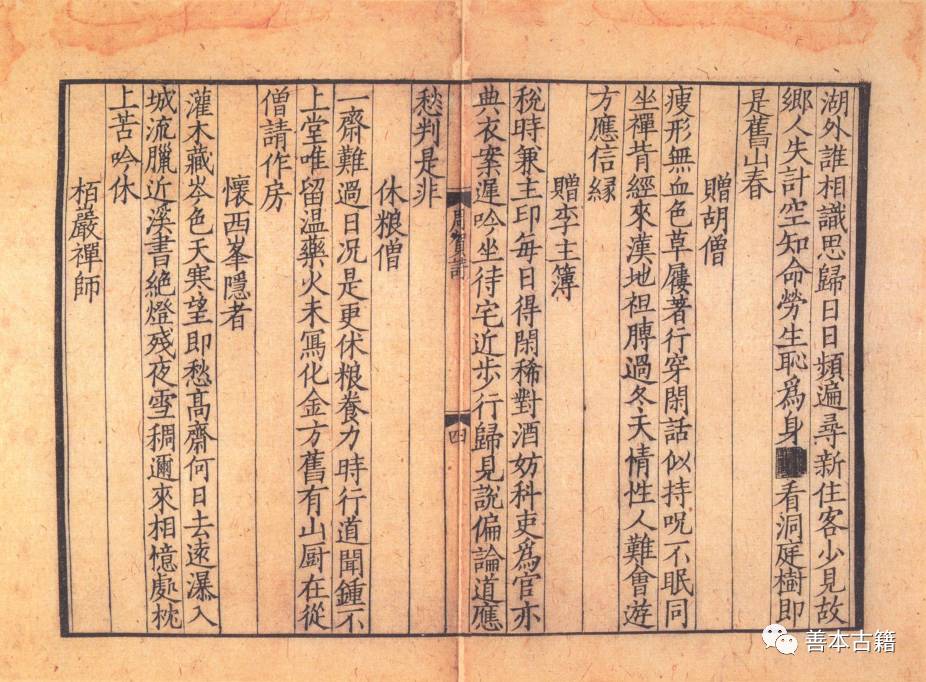 湖外誰相識思歸日日頻遍尋新住客少見故
鄉人失計空知命勞生恥爲身看洞庭樹即
是舊山春
贈胡僧
瘦形無血色草屨著行穿閑話似持呪不眠同
坐禪昔經來漢地袒膊過冬天情性人難會遊
方應信縁
贈李主簿
稅時兼主印每日得閑稀對酒妨科吏爲官亦
典衣案遲吟坐待宅近步行歸見說偏論道應
愁判是非
周賀詩
四
休粮僧
一齋難過日况是更休粮養力時行道聞鍾不
上堂唯留温藥火未寫化金方舊有山厨在從
僧請作房
懷西峯隱者
灌木藏岑色天寒望即愁髙齋何日去逺瀑入
城流臘近溪書絶燈殘夜雪稠邇來相憶處枕
上苦吟休
栢巖禪師
善本古籍